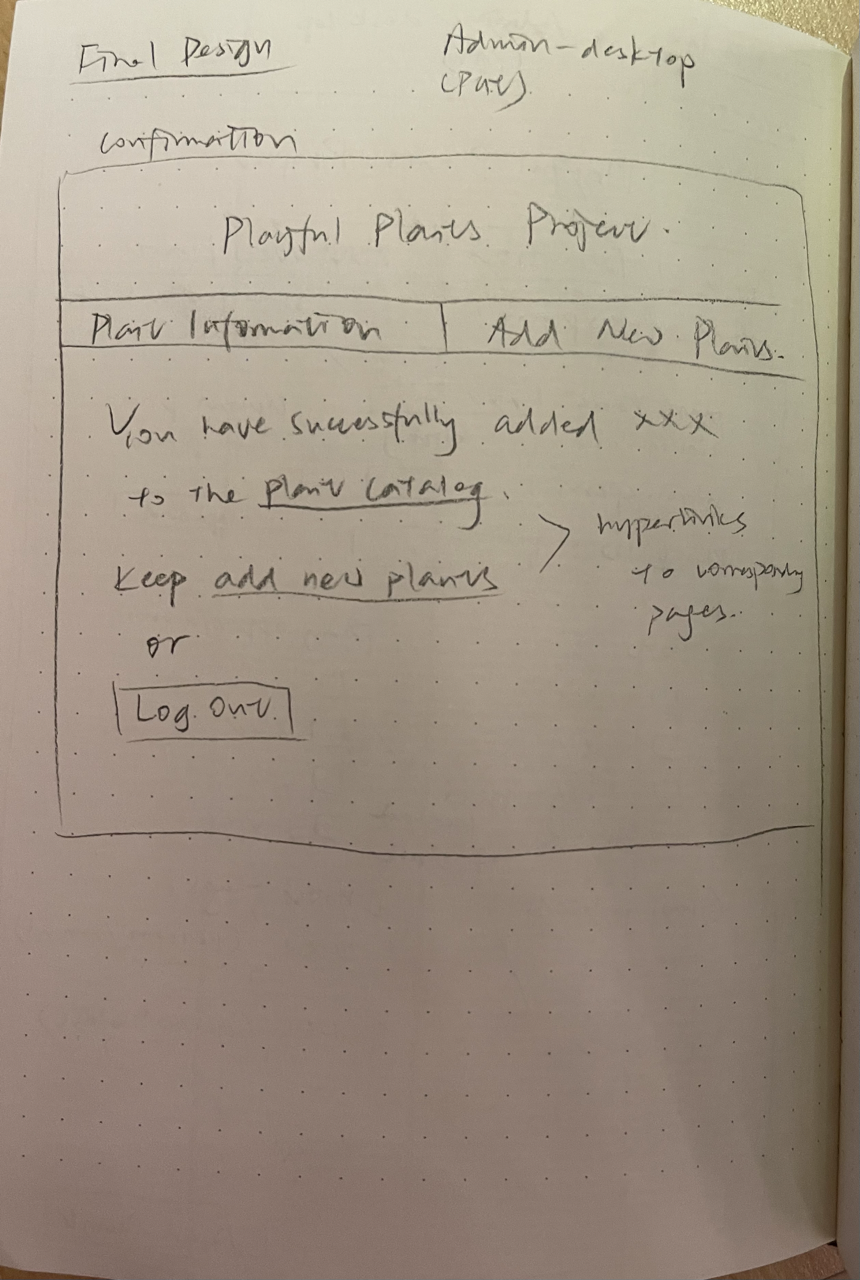 Final Design
Admin-desktop
confirmation
Playful Plants Project.
Plant Information
Add New Plants.
You have successfully added xxx
to the plant catalog.
Keep add new plants
or
Log Out
hyperlinks
to
pages.